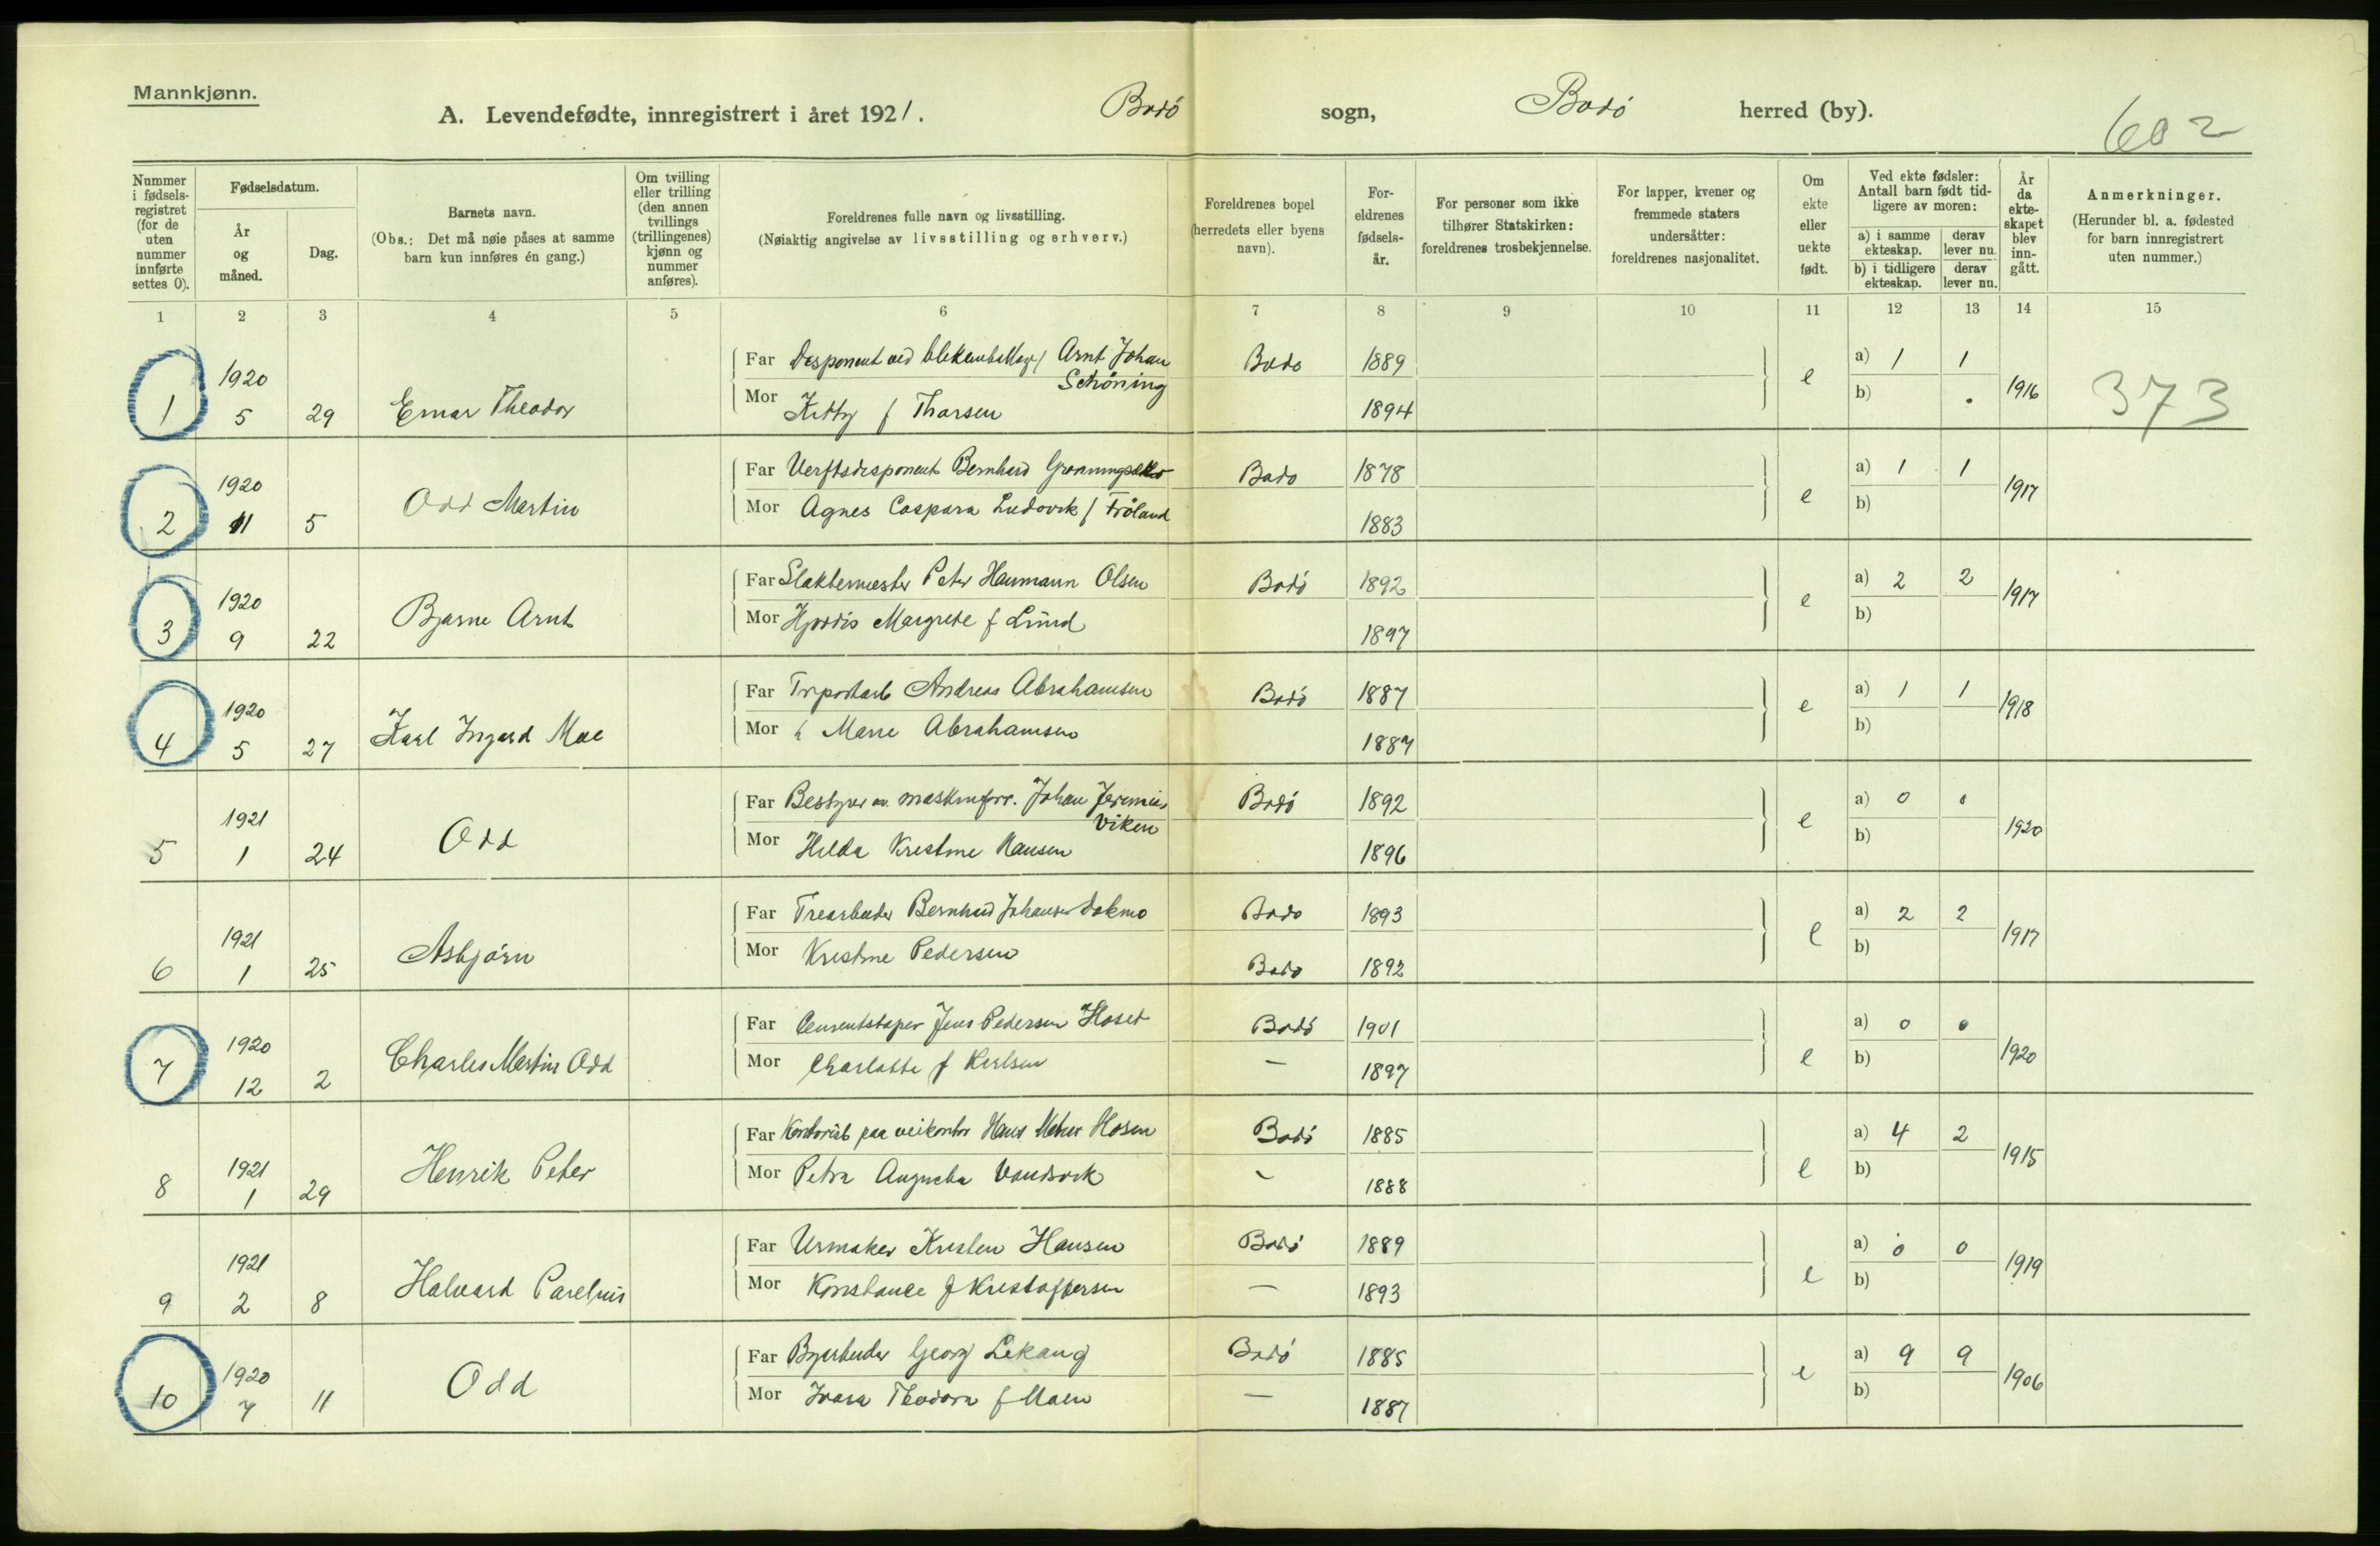 Mannkjønn.
A. Levendefødte, innregistrert i året 1921. Bodö sogn, Bodö herred (by).
602
Nummer i fødsels-registret (for de uten nummer innførte settes 0).
Fødselsdatum.
År og måned.
Dag.
Barnets navn.
(Obs.: Det må nøie påses at samme barn kun innføres én gang.)
Om tvilling eller trilling (den annen tvillings (trillingenes) kjønn og nummer anføres).
Foreldrenes fulle navn og livsstilling.
(Nøiaktig angivelse av livsstilling og erhverv.)
Foreldrenes bopel (herredets eller byens navn).
For-eldrenes fødsels-år.
For personer som ikke tilhører Statskirken: foreldrenes trosbekjennelse.
For lapper, kvener og fremmede staters undersåtter: foreldrenes nasjonalitet.
Om ekte eller uekte født.
Ved ekte fødsler: Antall barn født tid-ligere av moren:
a) i samme ekteskap. derav lever nu.
b) i tidligere ekteskap. derav lever nu.
År da ekte-skapet blev inn-gått.
Anmerkninger.
(Herunder bl. a. fødested for barn innregistrert uten nummer.)
1 2 3 4 5 6 7 8 9 10 11 12 13 14 15
1 1920 5 29 Einar Theodor
Far Disponent ved Arnt Johan Schöning Bodo 1889
Mor Kitty f Thorsen 1894
e a) 1 1 b) 1916 373
2 1920 11 5 Odd Martin
Far Verftsdisponent Bernhard Bodo 1878
Mor Agnes Caspara Ludovik f Fröland 1883
e a) 1 1 b) 1917
3 1920 9 22 Bjarne Arnt
Far Slaktermester Peter Hermann Olsen Bodö 1892
Mor Hjordis Margrete f Lund 1897
e a) 2 2 b) 1917
4 1920 5 27 Karl Ingard Moe
Far Andreas Abrahamsen Bodö 1887
Mor Marie Abrahamsen 1887
e a) 1 1 b) 1918
5 1921 1 24 Odd
Far Bestyrer av maskinforr. Johan Jeremias Viken Bodö 1892
Mor Hilda Kristine Hansen 1896
e a) 0 0 b) 1920
6 1921 1 25 Asbjörn
Far Trearbeider Bernhard Johansen Dokmo Bodo 1893
Mor Kristine Pedersen Bodo 1892
e a) 2 2 b) 1917
7 1920 12 2 Charles Martin Odd
Far Cementstøper Jens Pedersen Hoset Bodö 1901
Mor Charlotte f Karlsen — 1897
e a) 0 0 b) 1920
8 1921 1 29 Henrik Peter
Far Kontorist paa veikontor Hans Hosen Bodö 1885
Mor Petra Augusta Vandvik — 1888
e a) 4 2 b) 1915
9 1921 2 8 Halvard Parelius
Far Urmaker Kristen Hansen Bodö 1889
Mor Konstance f Kristoffersen — 1893
e a) 0 0 b) 1919
10 1920 7 11 Odd
Far Byarbeider Georg Lekang Bodö 1885
Mor Theodora f — 1887
e a) 9 9 b) 1906